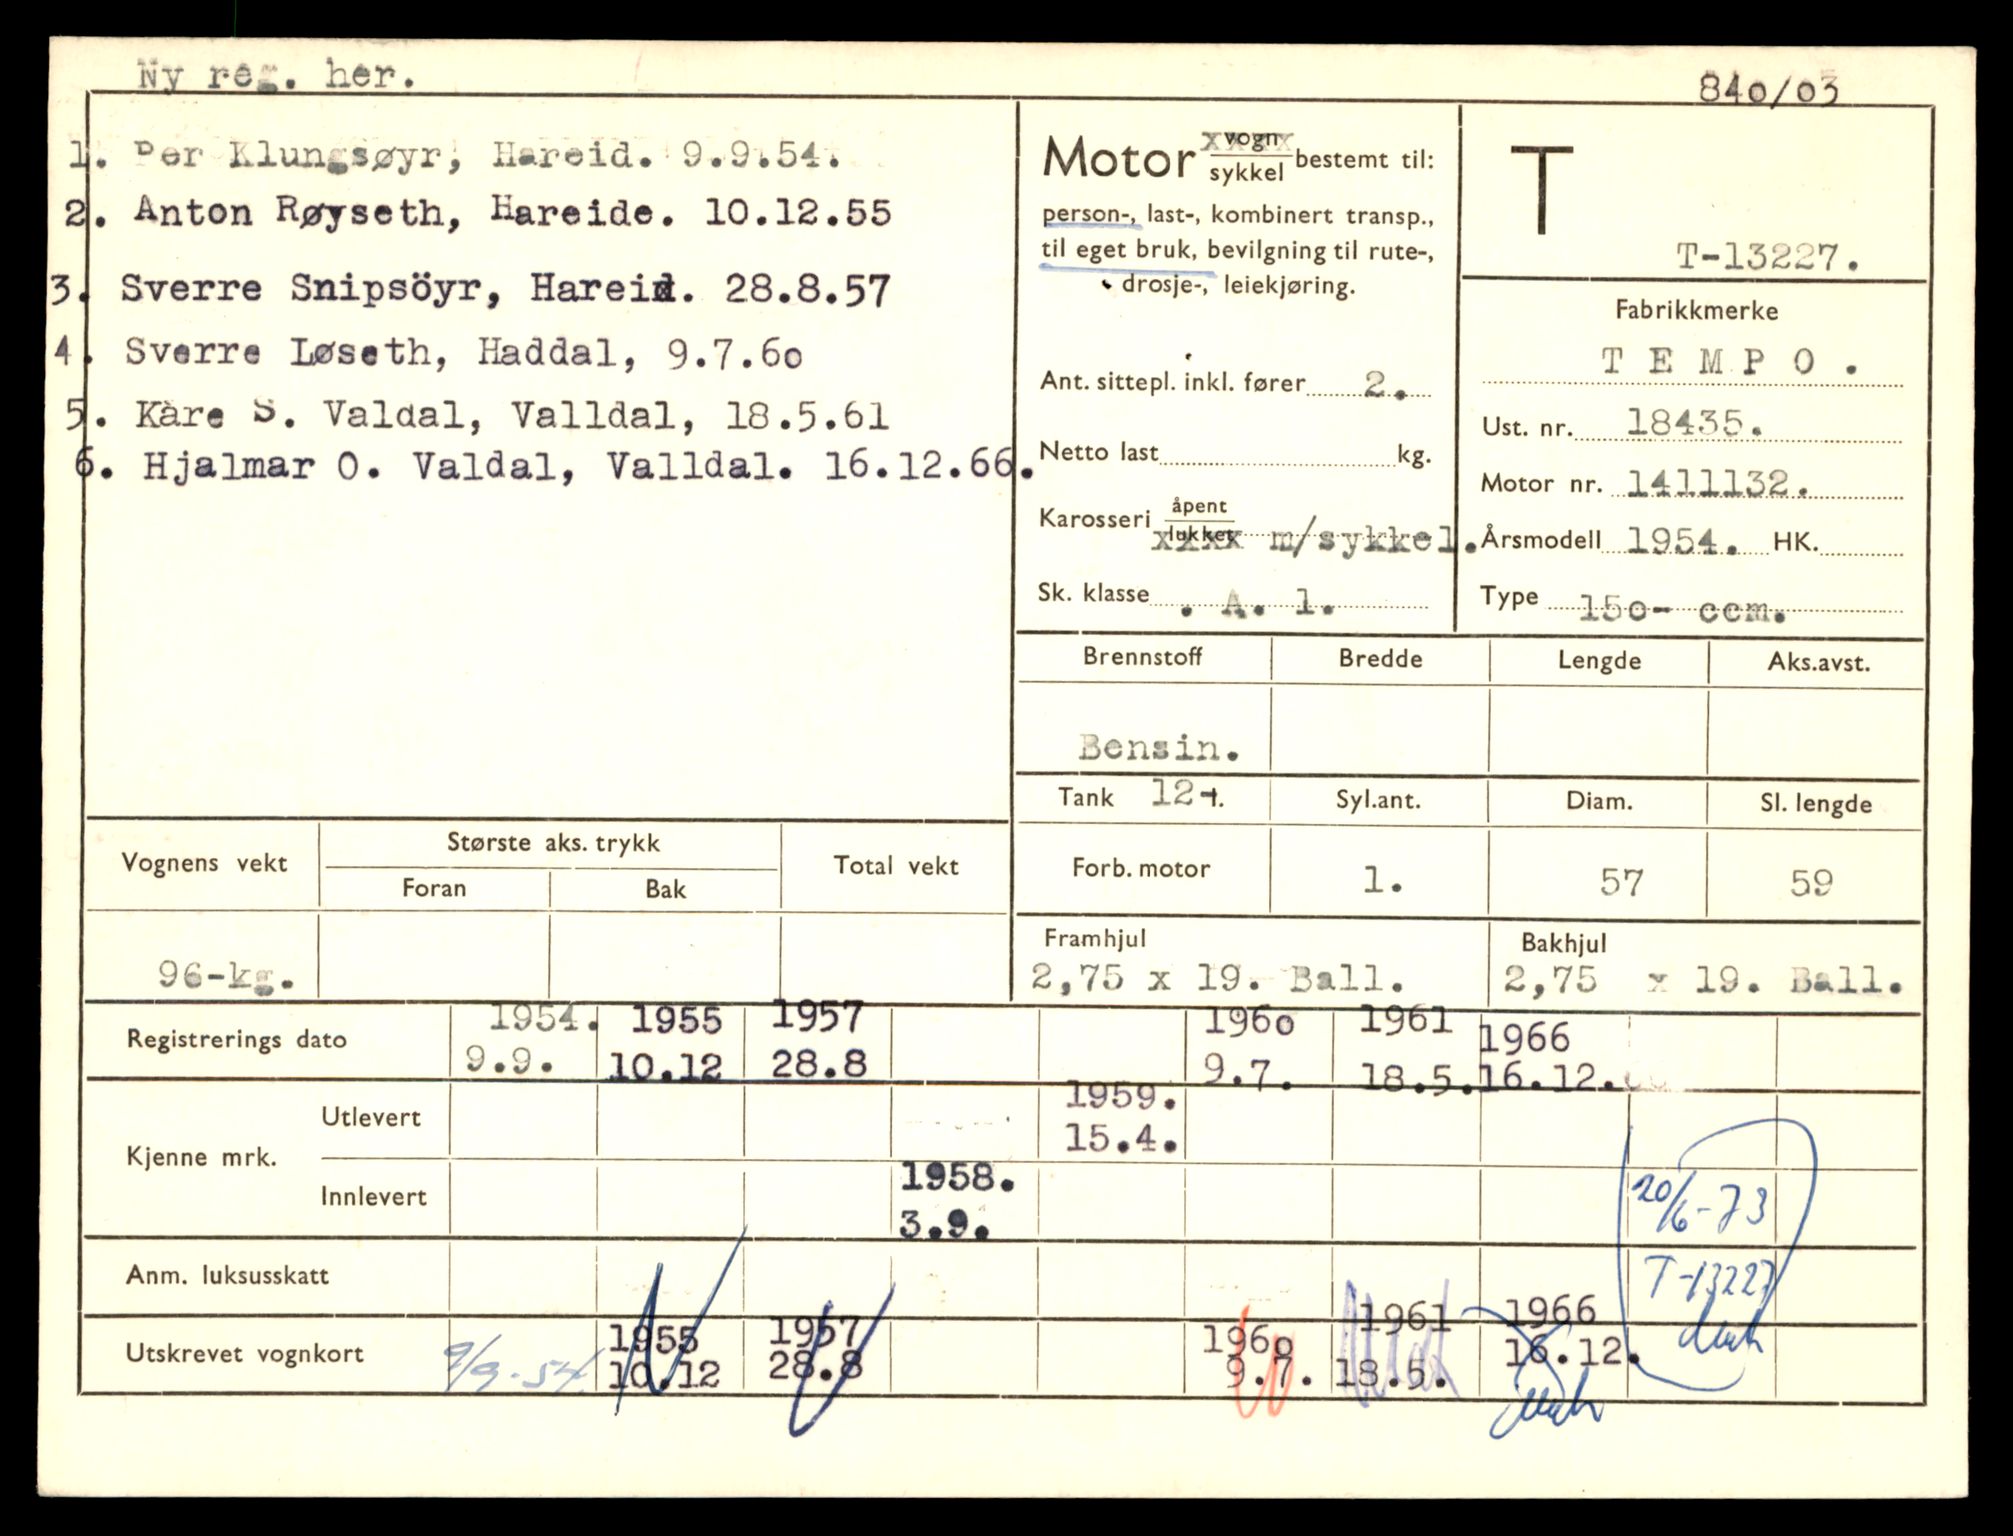 Ny reg. her.
840/03
1. Per Klungsøyr, Hareid. 9.9.54.
2. Anton Røyseth, Hareide. 10.12.55
3. Sverre Snipsöyr, Hareid. 28.8.57
4. Sverre Løseth, Haddal, 9.7.6o
5. Kåre S. Valdal, Valldal, 18.5.61
6. Hjalmar O. Valdal, Valldal. 16.12.66.
Motor vogn/sykkel bestemt til:
person-, last-, kombinert transp.,
til eget bruk, bevilgning til rute-,
drosje-, leiekjøring.
Ant. sittepl. inkl. fører 2.
Netto last kg.
Karosseri åpent/lukket m/sykkel.
Sk. klasse . A. 1.
T
T-13227.
Fabrikkmerke
T E M P O .
Ust. nr. 18435.
Motor nr. 1411132.
Årsmodell 1954. HK.
Type 15o- ccm.
Brennstoff Bredde Lengde Aks.avst.
Bensin.
Tank 12-l. Syl.ant. Diam. Sl. lengde
Forb. motor 1. 57 59
Framhjul Bakhjul
2,75 x 19. Ball. 2,75 x 19. Ball.
Vognens vekt Største aks. trykk Total vekt
Foran Bak
96-kg.
Registrerings dato 1954. 1955 1957 196o 1961 1966
9.9. 10.12 28.8 9.7. 18.5. 16.12.
Kjenne mrk. Utlevert 1959.
15.4.
Innlevert 1958.
3.9.
20/6-73
Anm. luksusskatt T-13227
Utskrevet vognkort 9/9-54. 1955 1957 196o 1961 1966
10.12 28.8 9.7. 18.5. 16.12.